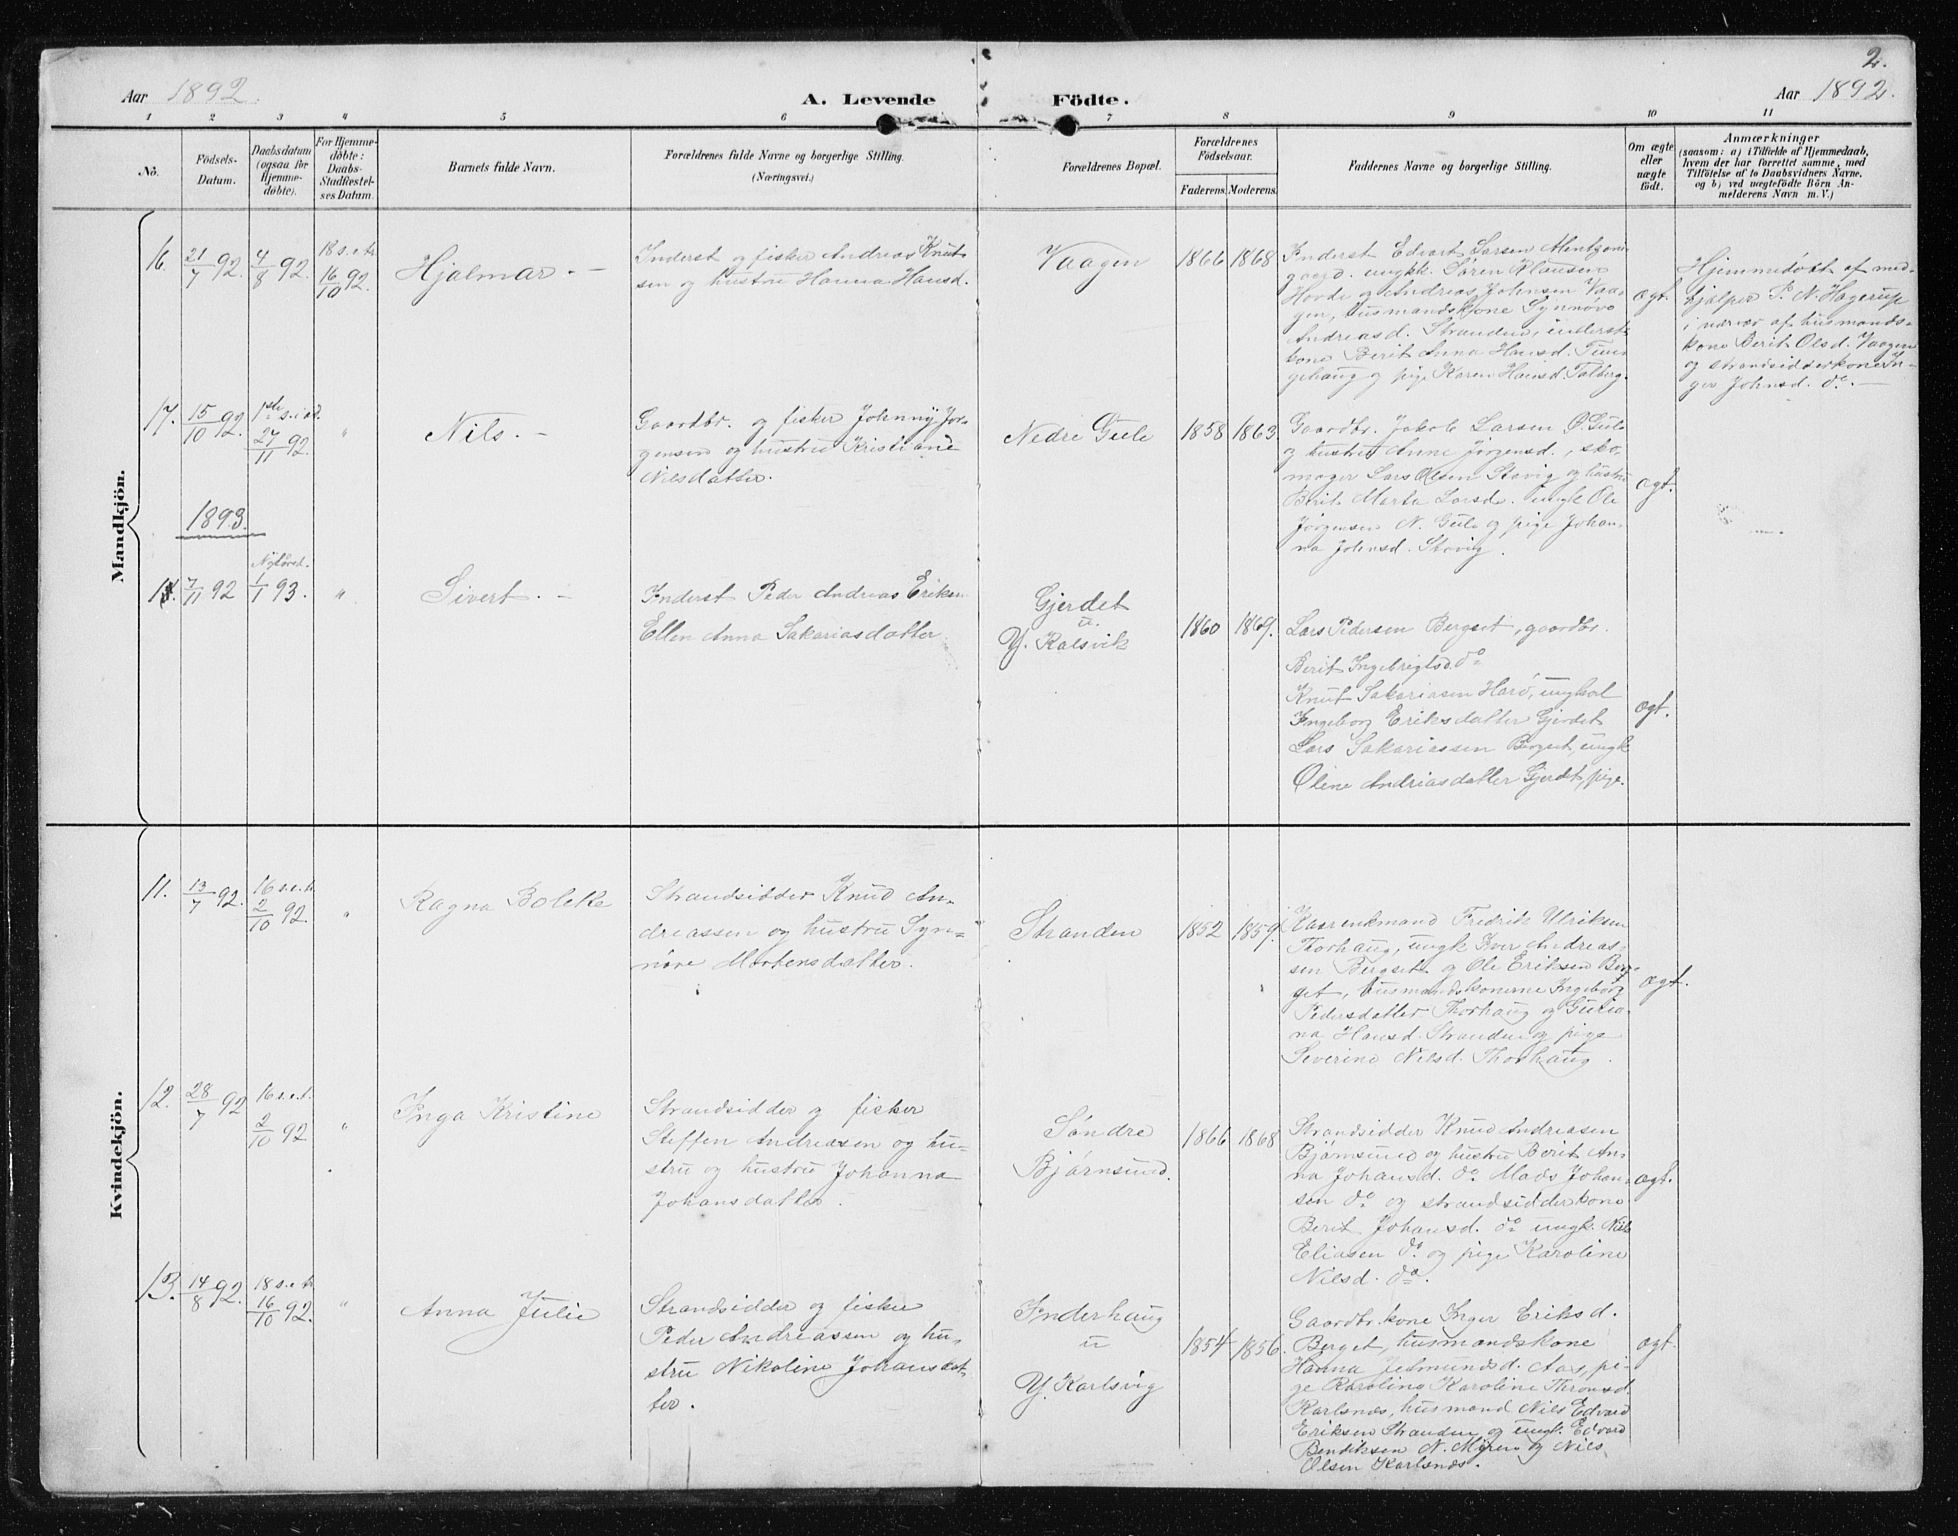 2.
Aar 1892. A. Levende Födte. Aar 1892.
1 2 3 4 5 6 7 8 9 10 11
No.
Födsels-
Datum.
Daabsdatum
(ogsaa for
Hjemme-
döbte).
For Hjemme-
döbte:
Daabs-
Stadfæstel-
ses Datum.
Barnets fulde Navn.
Forældrenes fulde Navne og borgerlige Stilling.
(Næringsvei.)
Forældrenes Bopæl.
Forældrenes
Födselsaar.
Faderens. Moderens.
Faddernes Navne og borgerlige Stilling.
Om ægte
eller
uægte
födt.
Anmærkninger
(saasom: a) i Tilfælde af Hjemmedaab,
hvem der har forrettet samme, med
Tilföielse af to Daabsvidners Navne,
og b) ved uægtefödte Börn An-
melderens Navn m. V.)
Mandkjön.
16. 21/7 92. 4/8 92. 18 s.e.tr. 16/10 92.
Hjalmar. —
Inderst og fisker Andreas Knut-
sen og hustru Hanna Hansd.
Vaagen
1866 1868
Inderst Edvart Larsen
gaard. ungk. Søren Klausen
Hovde og Andreas Johnsen Vaa-
gen, husmandskone Synnøve
Andreasd. Stranden, inderst-
kone Berit Anna Hansd.
gehaug og pige Karen Hansd. Talberg.
ægt.
Hjemmedøbt af med-
hjælper P. N. Hagerup
i nærvær af husmands-
kone Berit Olsd. Vaagen
og strandsidderkone In-
ger Johnsd. do. —
17. 15/10 92. 1ste s. i ad. 27/11 92. "
Nils. —
Gaardbr. og fisker Johnny Jør-
gensen og hustru Kristiane
Nilsdatter.
Nedre Gule
1858 1863.
Gaardbr. Jakob Larsen Ø. Gule
og hustru Anne Jørgensd., sko-
mager Lars Olsen Stavig og hustru
Berit Marta Larsd. ungk Ole
Jørgensen N. Gule og pige Johan-
na Johnsd. Stavig.
ægt.
1893.
18. 7/11 92 Nytårsd. 1/1 93. "
Sivert. —
Inderst Peder Andreas Eriksen
Ellen Anna Sakariasdatter.
Gjerdet
u.
Y. Kalsvik
1860 1869.
Lars Pedersen Bergset, gaardbr.
Berit Ingebrigtsd. do
Knut Sakariasen Harø, ungkal
Ingeborg Eriksdatter Gjerdet
Lars Sakariassen Bergset, ungk
Oline Andreasdatter Gjerdet, pige.
ægt.
Kvindekjön.
11. 13/7 92. 16 s.e.tr. 2/10 92. "
Ragna Bolette
Strandsidder Knud An-
dreassen og hustru Syn-
nøve Mortensdatter.
Stranden
1852 1859.
Kaarenkmand Fredrik Ulriksen
Thorhaug, ungk Iver Andreas-
sen Bergset og Ole Eriksen Berg-
set, husmandskonerne Ingeborg
Pedersdatter Thorhaug og Guria-
na Hansd. Stranden og pige
Severine Nilsd. Thorhaug.
ægt.
12. 28/7 92 16 s.e.t. 2/10 92 "
Inga Kristine
Strandsidder og fisker
Steffen Andreasen og hu-
stru og hustru Johanna
Johansdatter.
Søndre
Bjørnsund.
1866 1868
Strandsidder Knud Andreasen
Bjørnsund og hustru Berit An-
na Johansd. do. Mads Johan-
sen do. og strandsidderkone
Berit Johansd. do. ungk. Nils
Eliasen do. og pige Karoline
Nilsd. do.
ægt.
13. 14/8 92. 18 s.e.tr. 16/10 92. "
Anna Julie
Strandsidder og fisker
Peder Andreassen og hu-
stru Nikoline Johansdat-
ter.
Inderhaug
u
Y. Karlsvig
1854 1856.
Gaardbr.kone Inger Eriksd.
Berget, husmandskone
Hanna Aas, pi-
ge Karoline Karoline Thronsd.
Karlsnæs, husmand Nils Edvard
Eriksen Stranden og ungk. Edvard
Bendiksen N. Myren og Nils
Olsen Karlsnæs.
ægt.